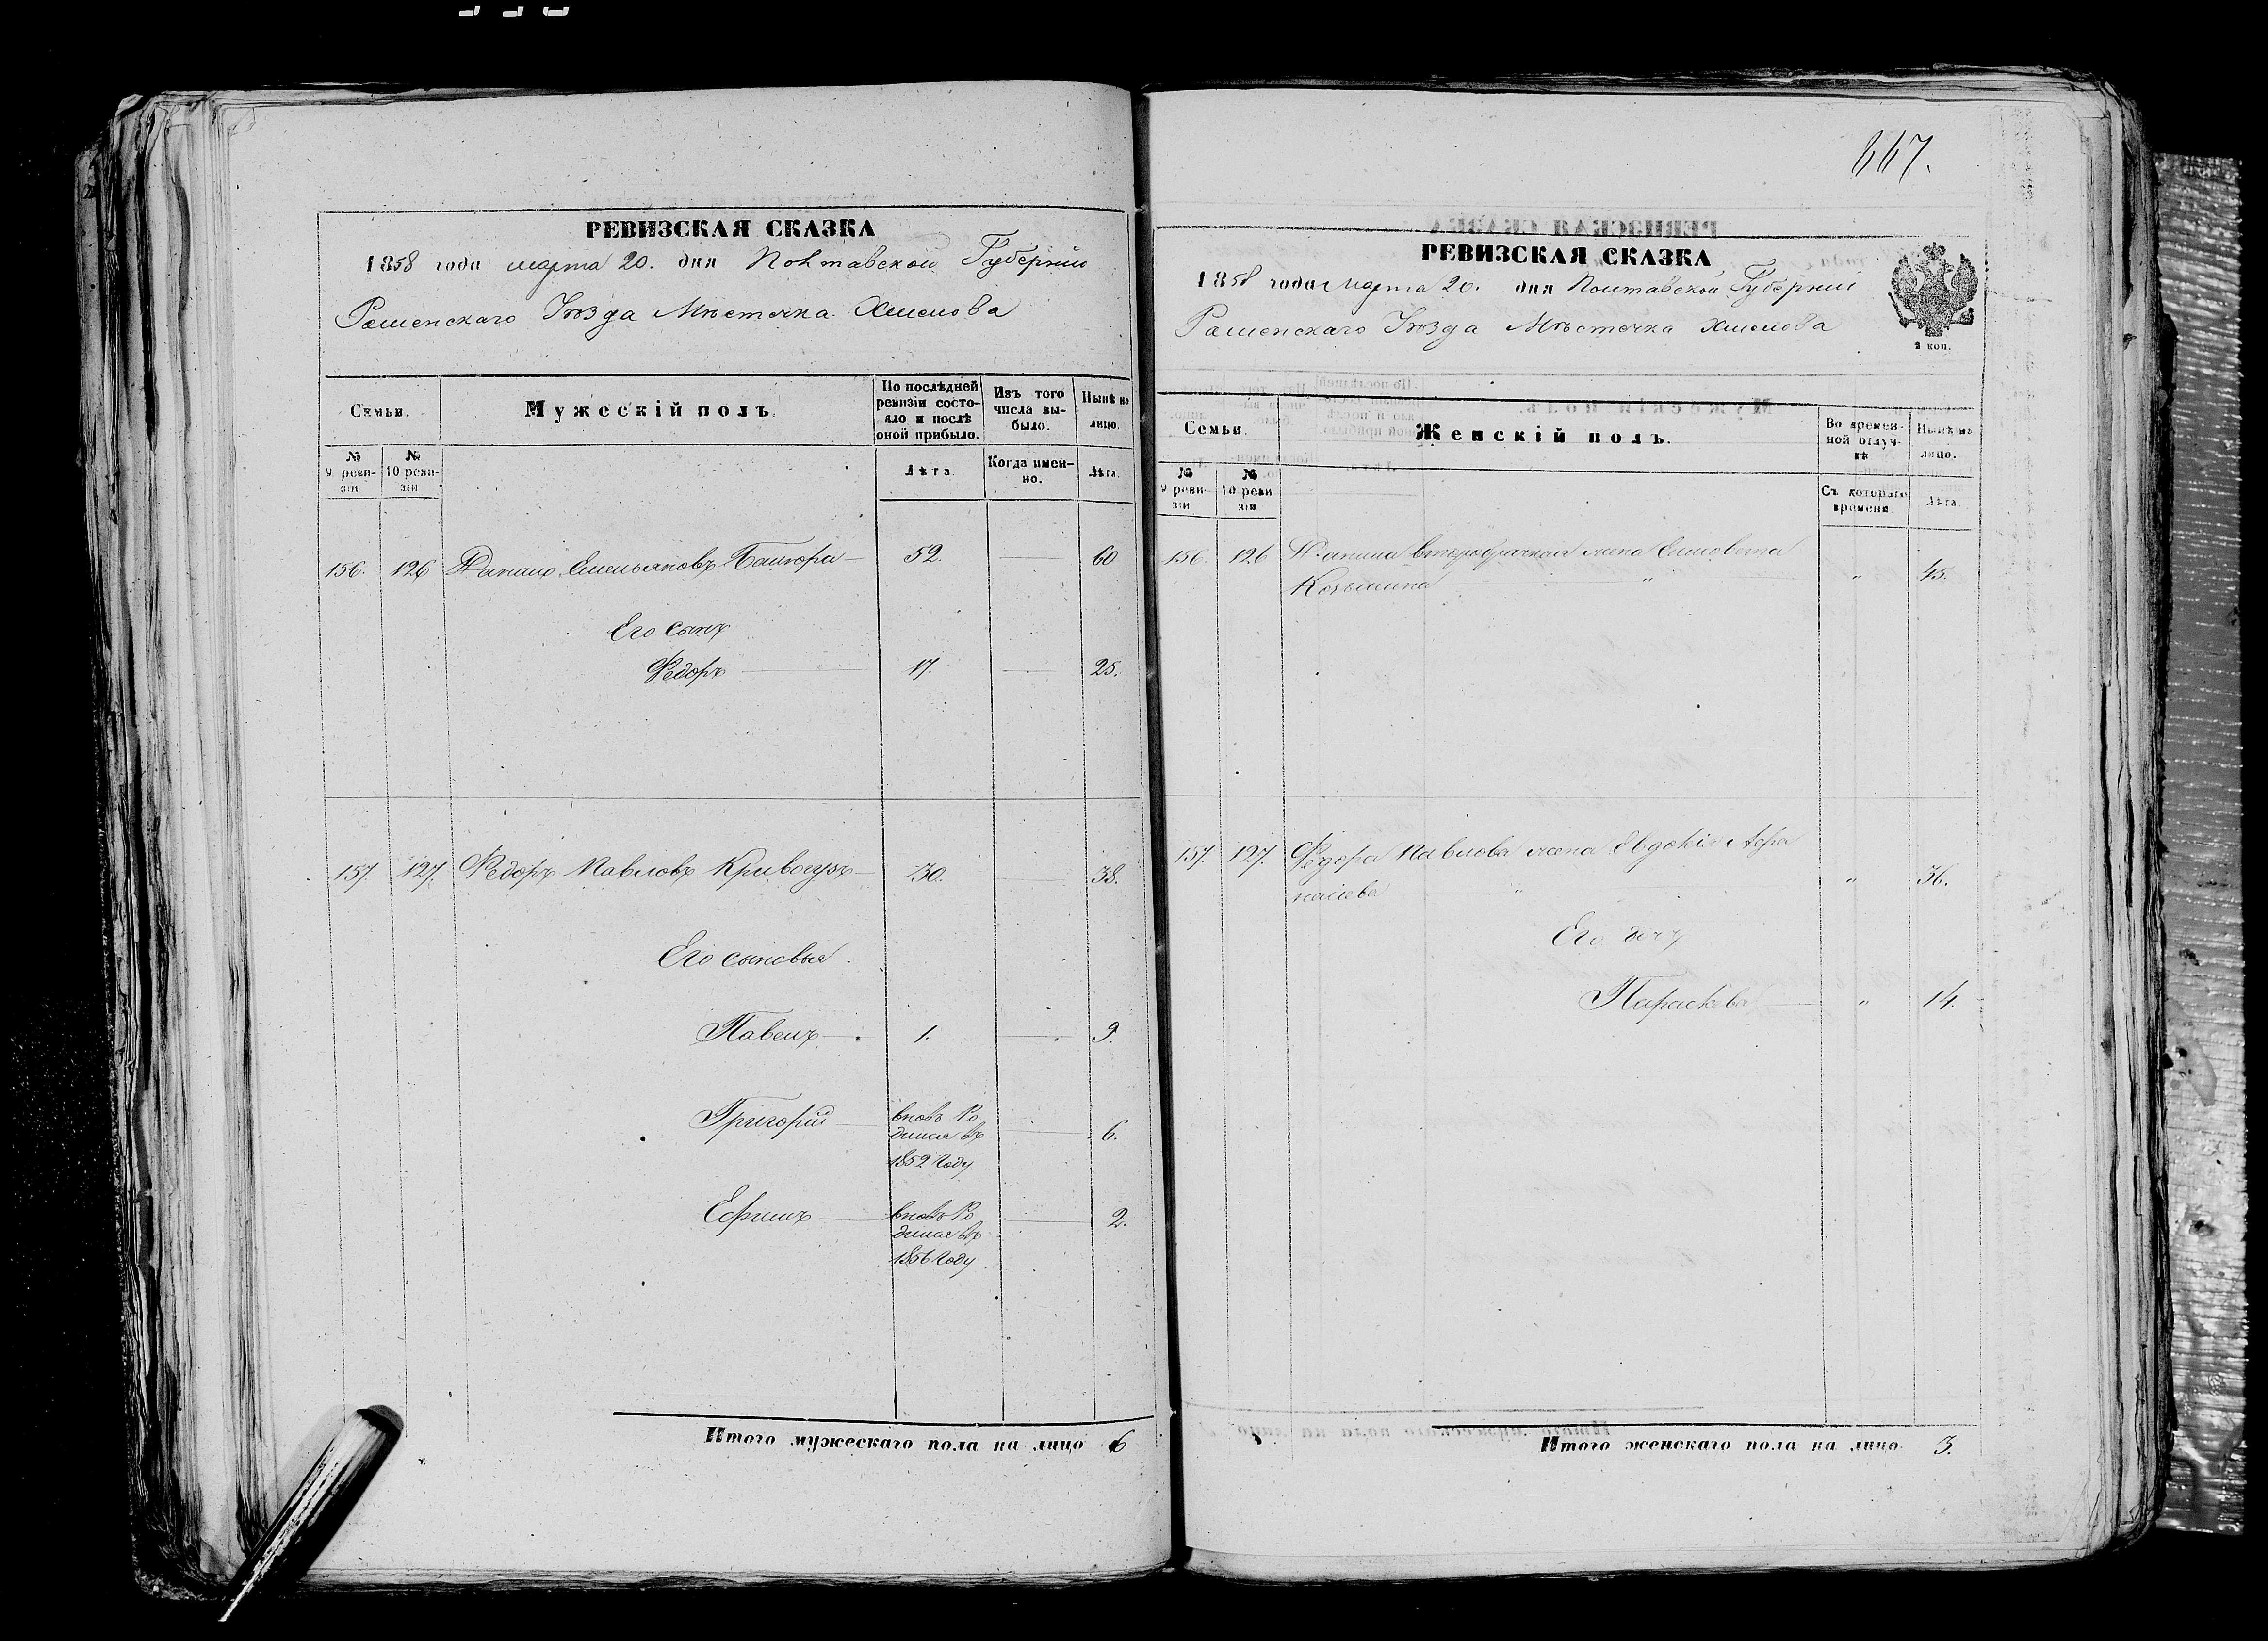 667.
РЕВИЗСКАЯ СКАЗКА
1858 года марта 20. дня Полтавской Губерніи
Роменскаго Уѣзда Мѣстечка Хмелова
Семьи.
Мужескій полъ.
По послѣдней ревизіи состояло и послѣ оной прибыло.
Изъ того числа выбыло.
Нынѣ на лицо.
№ 9 ревизіи
№ 10 ревизіи
Лѣта.
Когда именно.
Лѣта.
156. 126 Емельяновъ 52. 60
Его сынъ
Федоръ 17. 25.
157. 127. Федоръ Павловъ Кривогузъ 30. 38.
Его сыновья.
Павелъ 1. 9.
Григорій вновь Ро
дился въ 6.
1852 Году
Ефимъ вновь Ро 2.
дился въ
1856 Году
Итого мужескаго пола на лицо 6
РЕВИЗСКАЯ СКАЗКА
1858 года марта 20. дня Полтавской Губерніи
Роменскаго Уѣзда Мѣстечка Хмелова
2 коп.
Семьи.
Женскій полъ.
Во временной отлучкѣ
Нынѣ на лицо.
№ 9 ревизіи
№ 10 ревизіи
Съ котораго времени.
Лѣта.
156. 126 второбрачная жена Елисовета
" " 45.
157. 127. Федора Павлова жена Евдокія Афа
насіева " " 36.
Его дочь
Параскева " 14.
Итого женскаго пола на лицо 3.